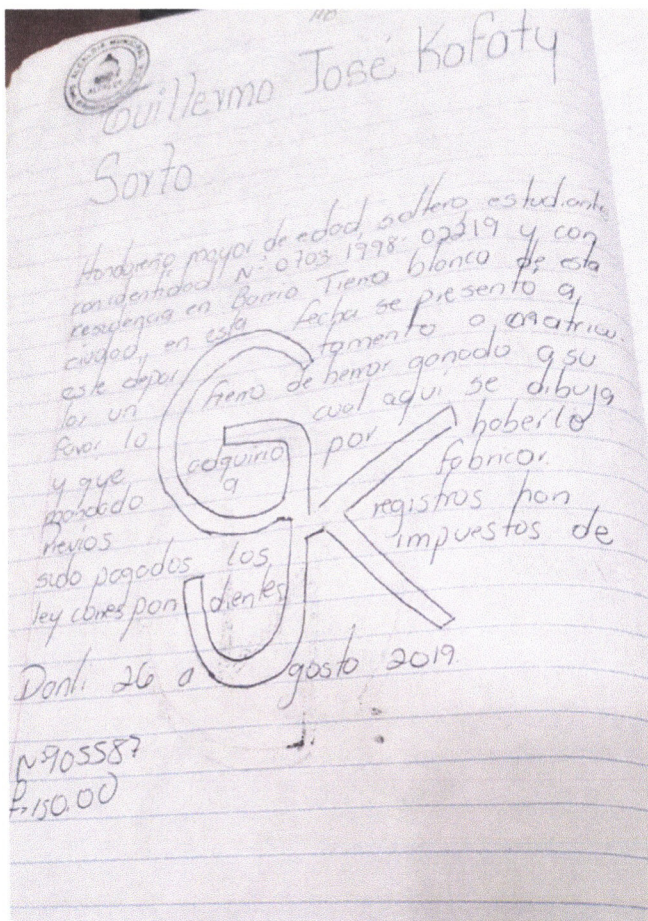 Guillermo José Kafaty
Sorto
Hondureño mayor de edad, soltero estudiante
con identidad Nº 0703-1998-02219 y con
residencia en Barrio Tierra blanca de esta
ciudad, en esta fecha se presento a
este depar tamento a matricu-
lar un fierro de herrar ganado a su
favor lo cual aqui se dibuja
y que adquirio por haberlo
mandado a fabricar.
Previos registros han
sido pagados los impuestos de
ley corres pon dientes
Danlí 26 agosto 2019.
Nº 905587
L. 150.00
GJK